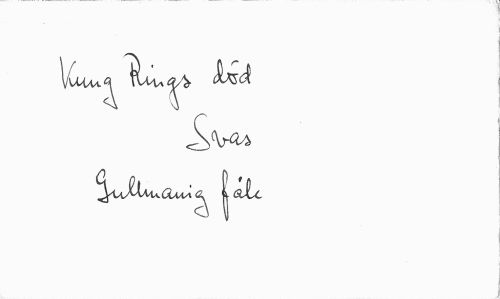 Kung Rings död
Svar
Gullmanig fåle